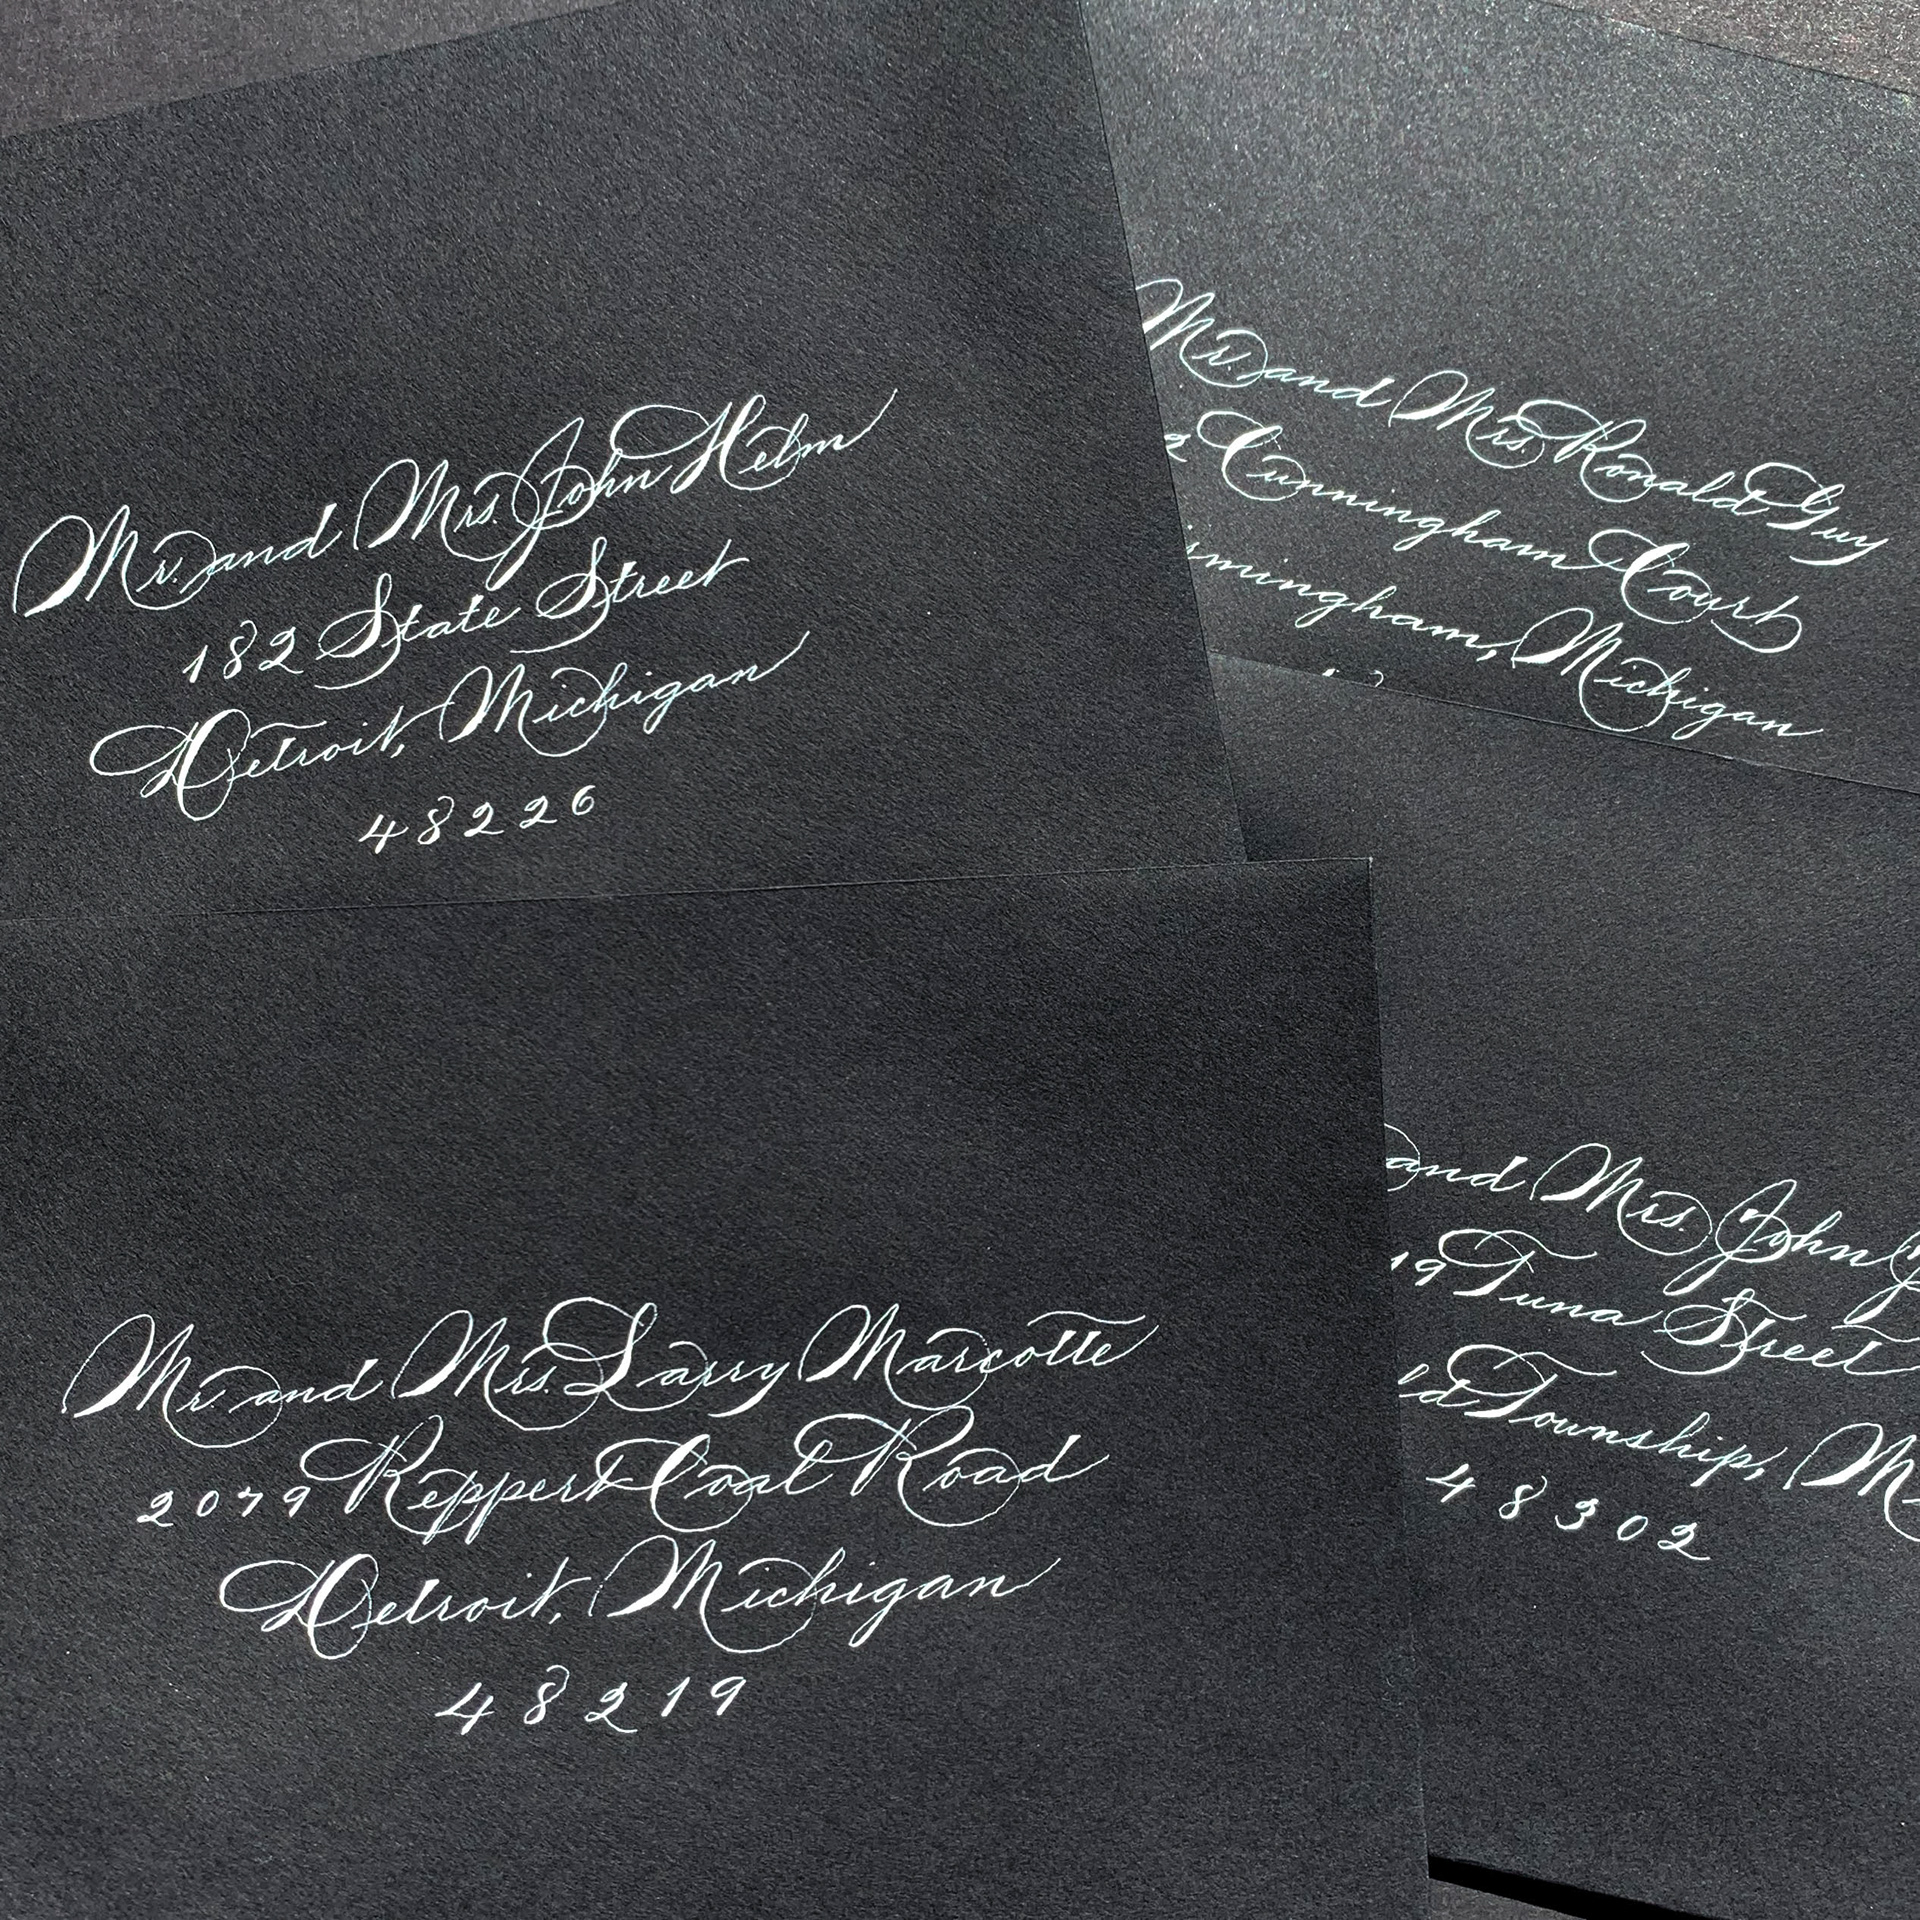 Mr. and Mrs. John Helm
182 State Street
Detroit, Michigan
48226
Mr. and Mrs. Ronald Guy
2 Cunningham Court
rmingham, Michigan
Mr. and Mrs. Larry Marcotte
2079 Reppert Coal Road
Detroit, Michigan
48219
and Mrs. John
19 Tuna Street
ld Township, M
48302